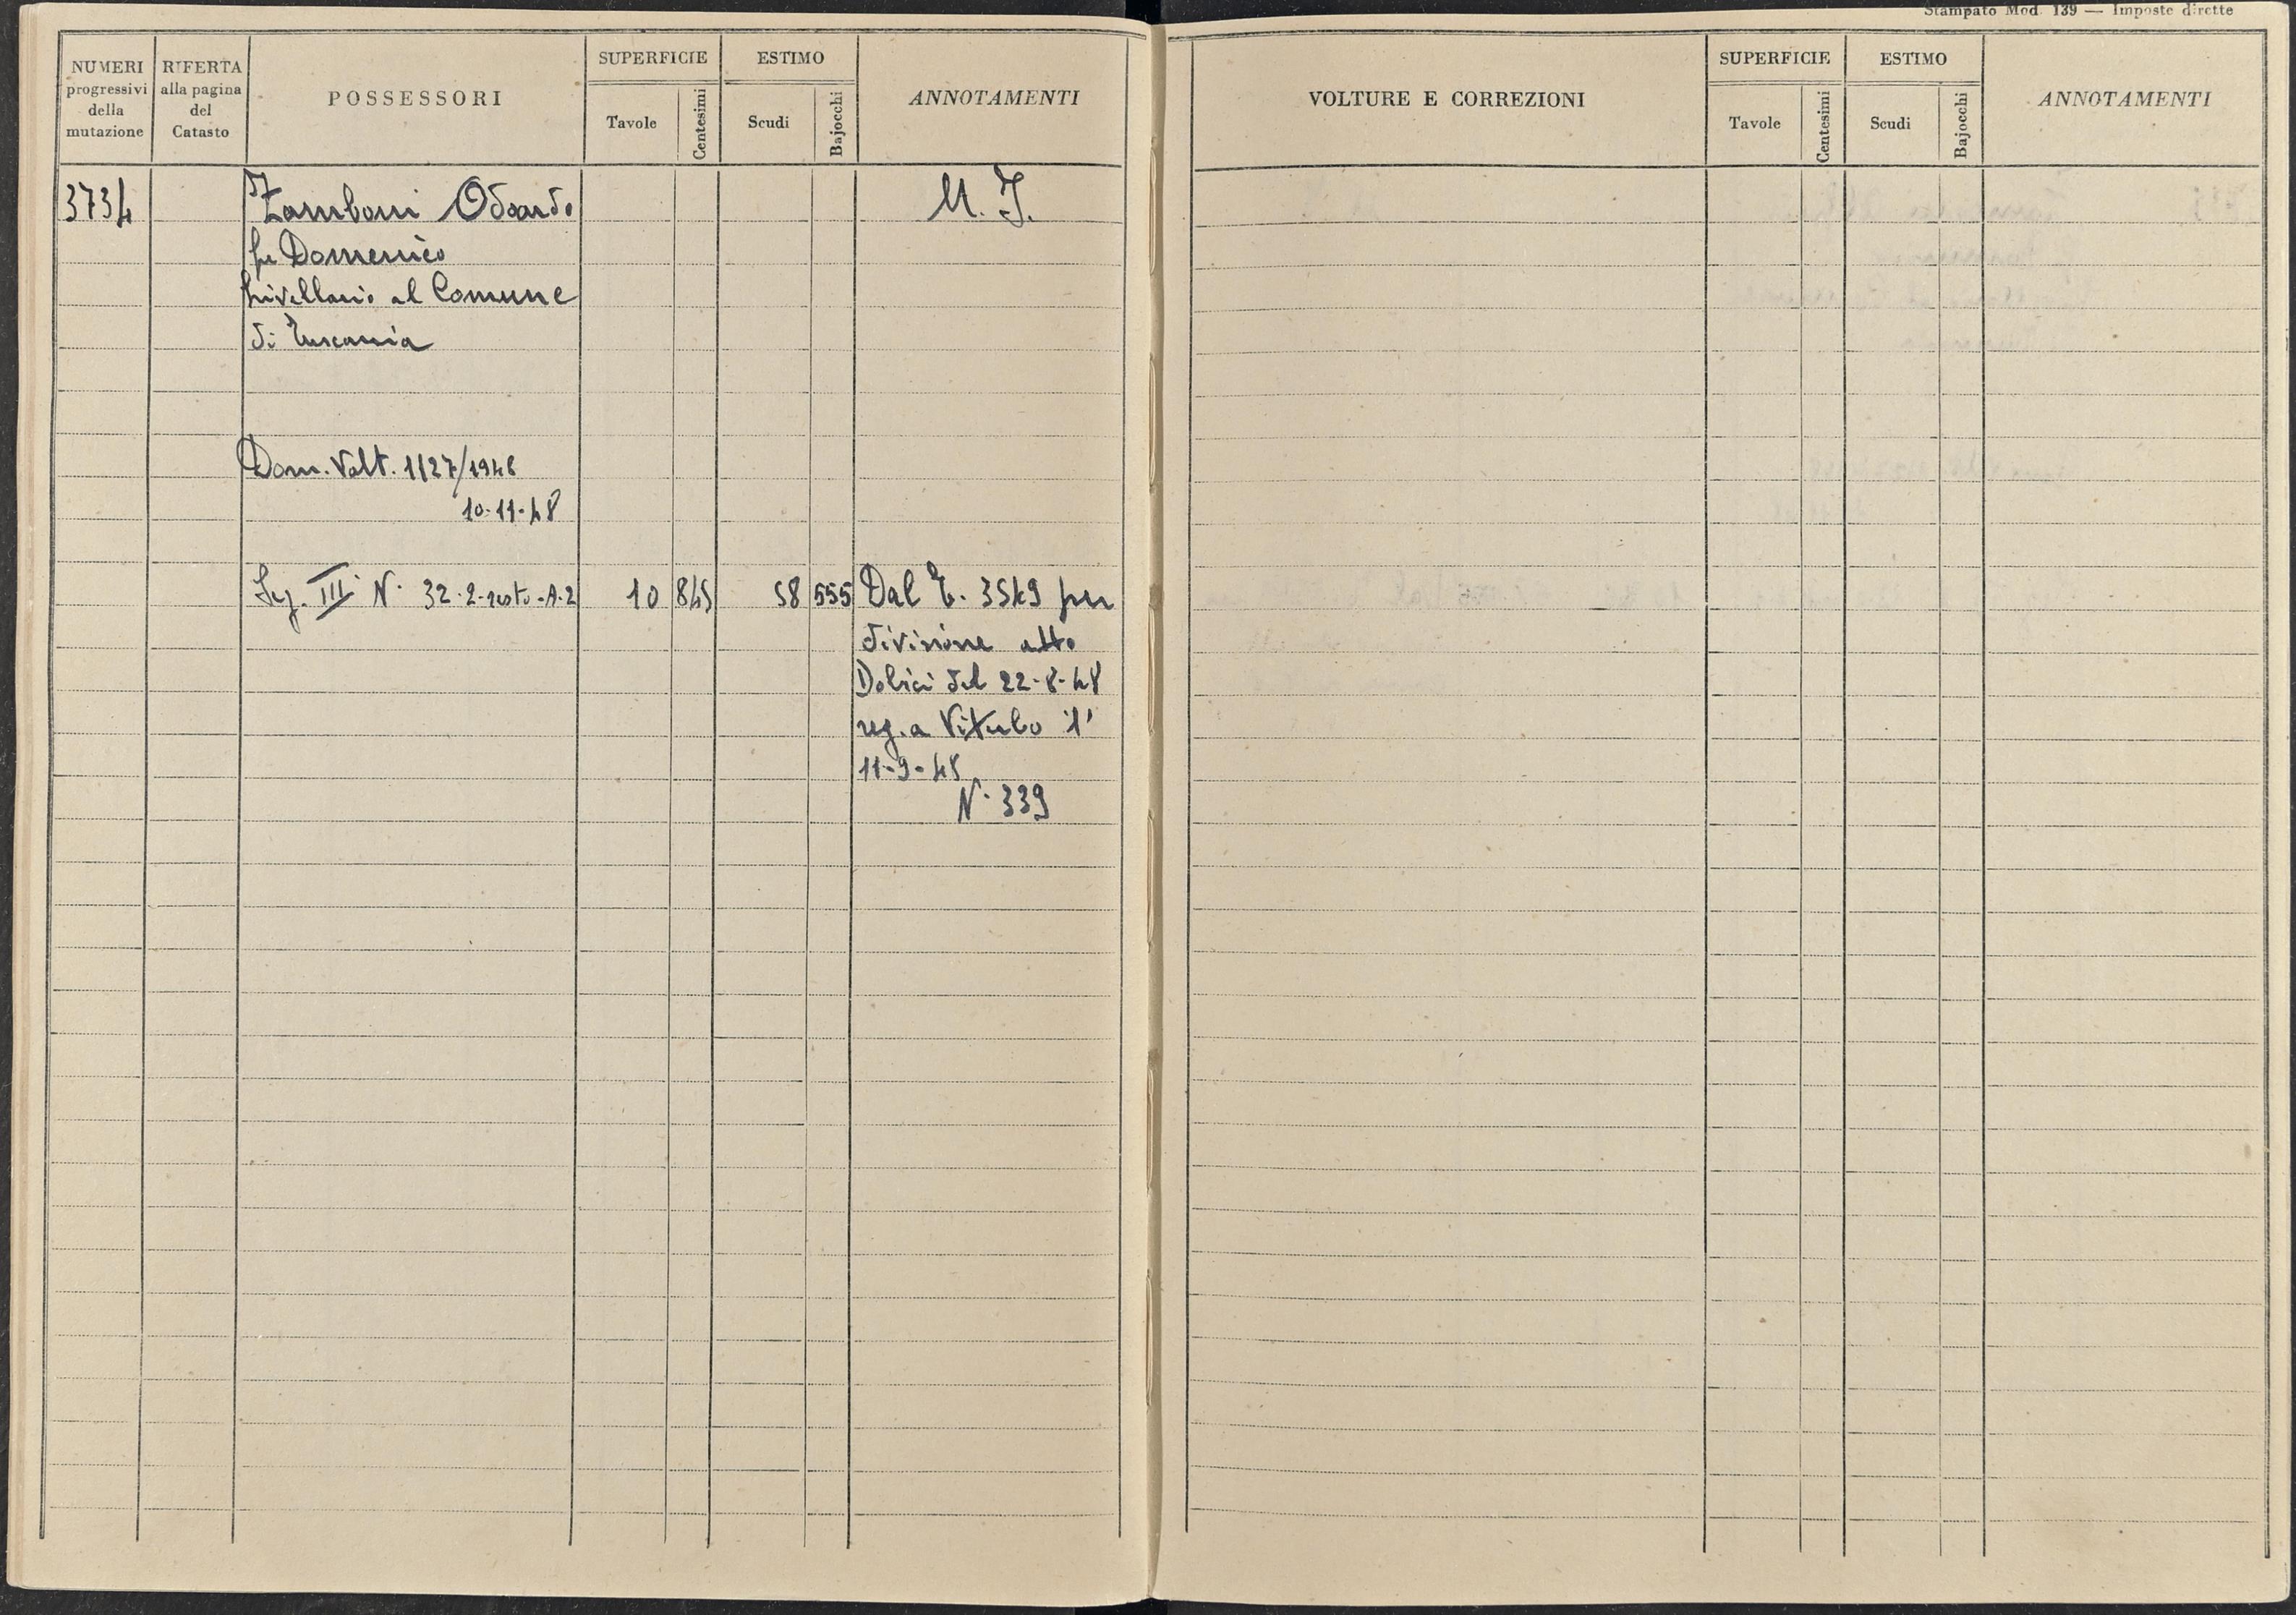 Stampato Mod. 139 — Imposte dirette
NUMERI progressivi della mutazione
RIFERTA alla pagina del Catasto
POSSESSORI
SUPERFICIE
Tavole
Centesimi
ESTIMO
Scudi
Bajocchi
ANNOTAMENTI
3734
Zamboni Odoardo
fu Domenico
livellario al Comune
di Tuscania
M. I.
Dom. Volt. 1127/1948
10-11-48
Sez. III N. 32-2-resto-A-2
10
845
58
555
Dal T. 3549 per
divisione atto
Dobici del 22-8-48
reg. a Viterbo l'
11-9-48
N. 339
VOLTURE E CORREZIONI
SUPERFICIE
Tavole
Centesimi
ESTIMO
Scudi
Bajocchi
ANNOTAMENTI